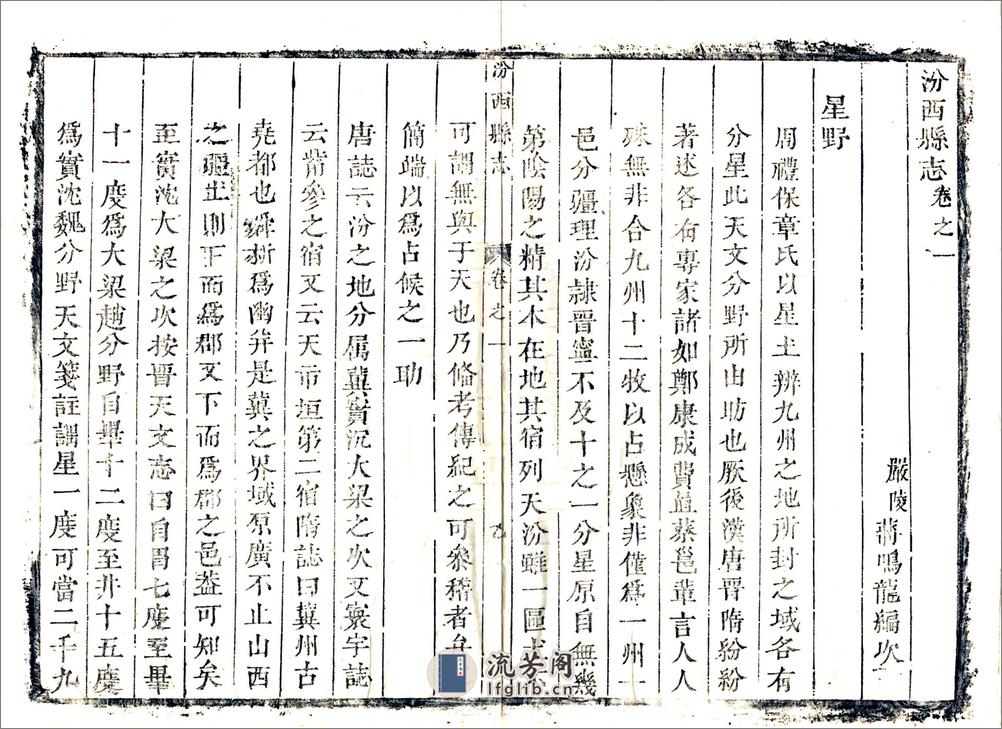 汾西縣志卷之一
嚴陵蔣鳴龍編次
星野
周禮保章氏以星土辨九州之地所封之域各有
分星此天文分野所由助也厥後漢唐晉隋紛紛
著述各有專家諸如鄭康成費直蔡邕輩言人人
殊無非合九州十二牧以占懸象非僅爲一州一
邑分疆理汾隷晉寧不及十之一分星原自無幾
第陰陽之精其本在地其宿列天汾雖一區
可謂無與于天也乃備考傳紀之可叅稽者弁
簡端以爲占候之一助
唐誌云汾之地分属冀實沉大梁之次又寰宇誌
云觜參之宿又云天市垣第二宿隋誌曰冀州古
堯都也舜析爲幽幷是冀之界域原廣不止山西
之疆土則下而爲郡又下而爲郡之邑益可知矣
至實沈大梁之次按晉天文志曰自胃七度至畢
十一度爲大梁趙分野自畢十二度至井十五度
爲實沈魏分野天文箋註謂星一度可當二千九
汾西縣志
卷之一
流芳阁
lfglib.cn